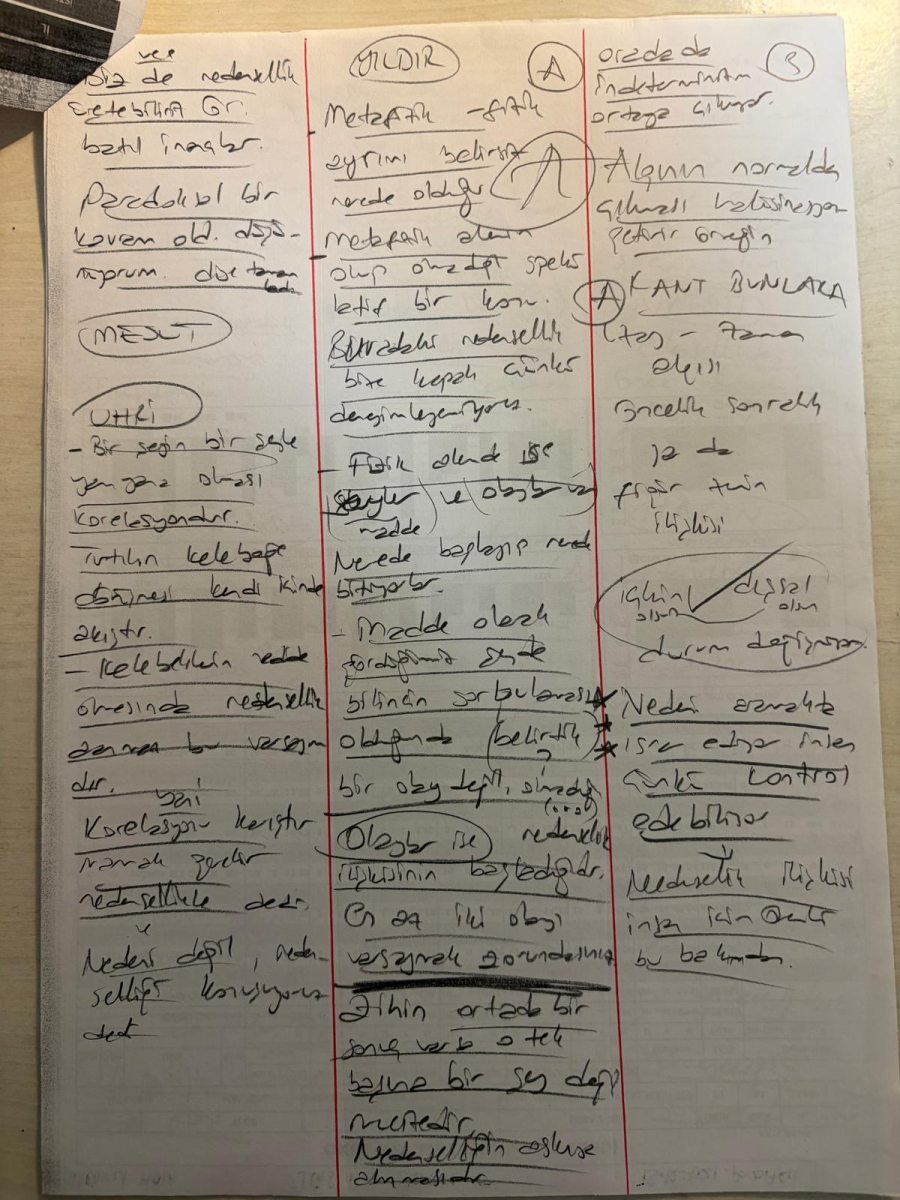 ve
biz de nedensellik
üretebiliriz Ör.
batıl inançlar.
Paradoksal bir
kavram old. düşü-
nüyorum. dise
MESUT
UHRİ
- Bir şeyin bir şeyle
yan yana olması
korelasyondur.
tırtılın kelebeğe
dönüşmesi kendi içinde
akıştır.
- Kelebeklerin nedde
ölmesinde nedensellik
aranması bu varsayım
dır.
yani
Korelasyonu karıştır
mamak gerekir
nedensellikle dedi.
Nedeni değil, neden-
selliği konuşuyoruz
dedi
YILDIR
A
- Metafizik - fizik
ayrımı belirsiz
nerede olduğu
A
- Metafizik alanın
olup olmadığı spekü
latif bir konu.
Buradaki nedensellik
bize kapalı çünkü
deneyimleyemiyoruz.
- Fizik alanda ise
şeyler ve olaylar var
madde
Nerede başlayıp nerede
bitiyorlar.
- Madde olarak
gördüğümüz şeyde
bilincin şartbulanması
olduğunda (belirttik)
bir olay değil, olmadığı
Olaylar ise nedensellik
ilişkisinin başladığıdır.
En az iki olayı
varsaymak zorundasınız
Zihin ortada bir
sonuç varsa o tek
başına bir şey değil
Nedenselliğin askıya
alınmasıdır.
orada da
B
İndeterminizm
ortaya çıkıyor.
Algının normalden
çıkması halisinasyon
getirir örneğin
A KANT BUNLARA
(taş - zaman
akışı
Öncelik sonralık
ya da
figür zemin
ilişkisi
içkin olsun dışsal olsun
durum değişmiyor
* Neden aramakta
* ısrar ediyor insan
* çünkü kontrol
edebiliyor
Nedensellik ilişkisi
insan için önemli
bu bakımdan.